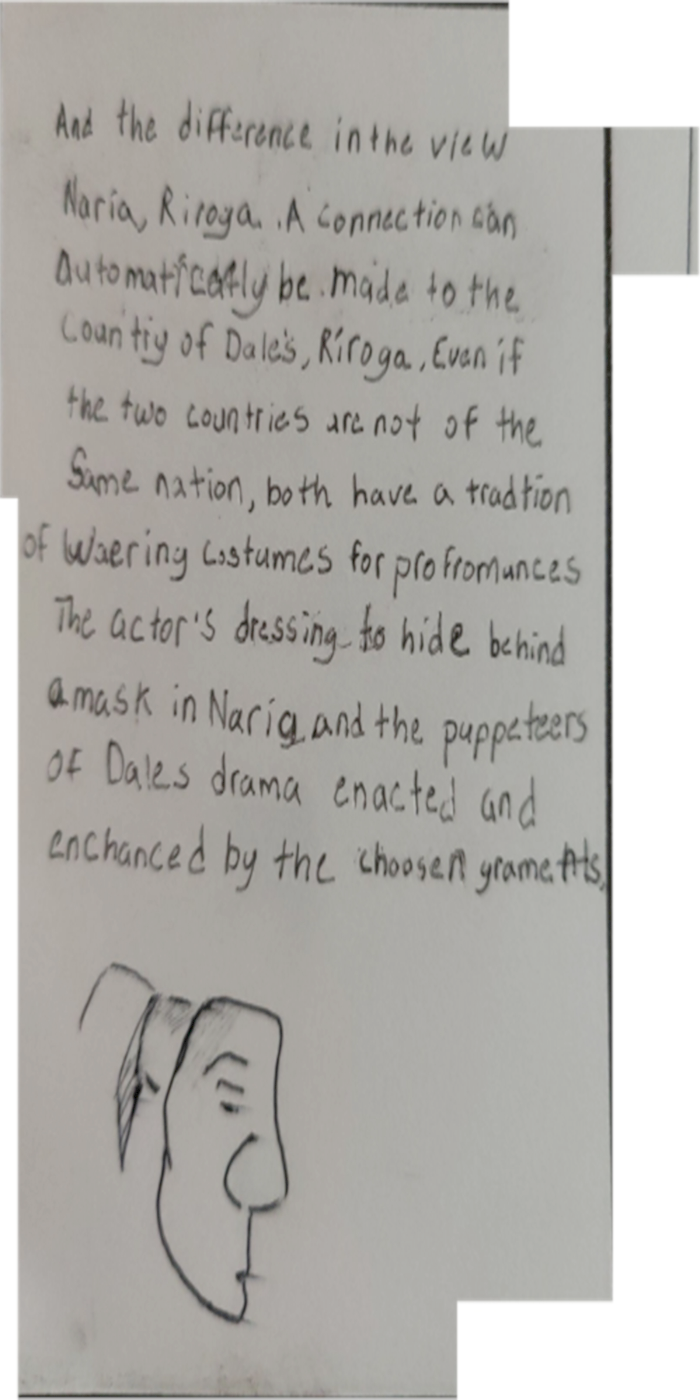 And the difference in the view
Naria, Riroga. A connection can
Automatically be made to the
Countiy of Dale's, Riroga, Even if
the two countries are not of the
Same nation, both have a tradtion
of Waering costumes for profromances
The actor's dressing to hide behind
a mask in Naria and the puppeteers
of Dales drama enacted and
enchanced by the choosen grameNts.